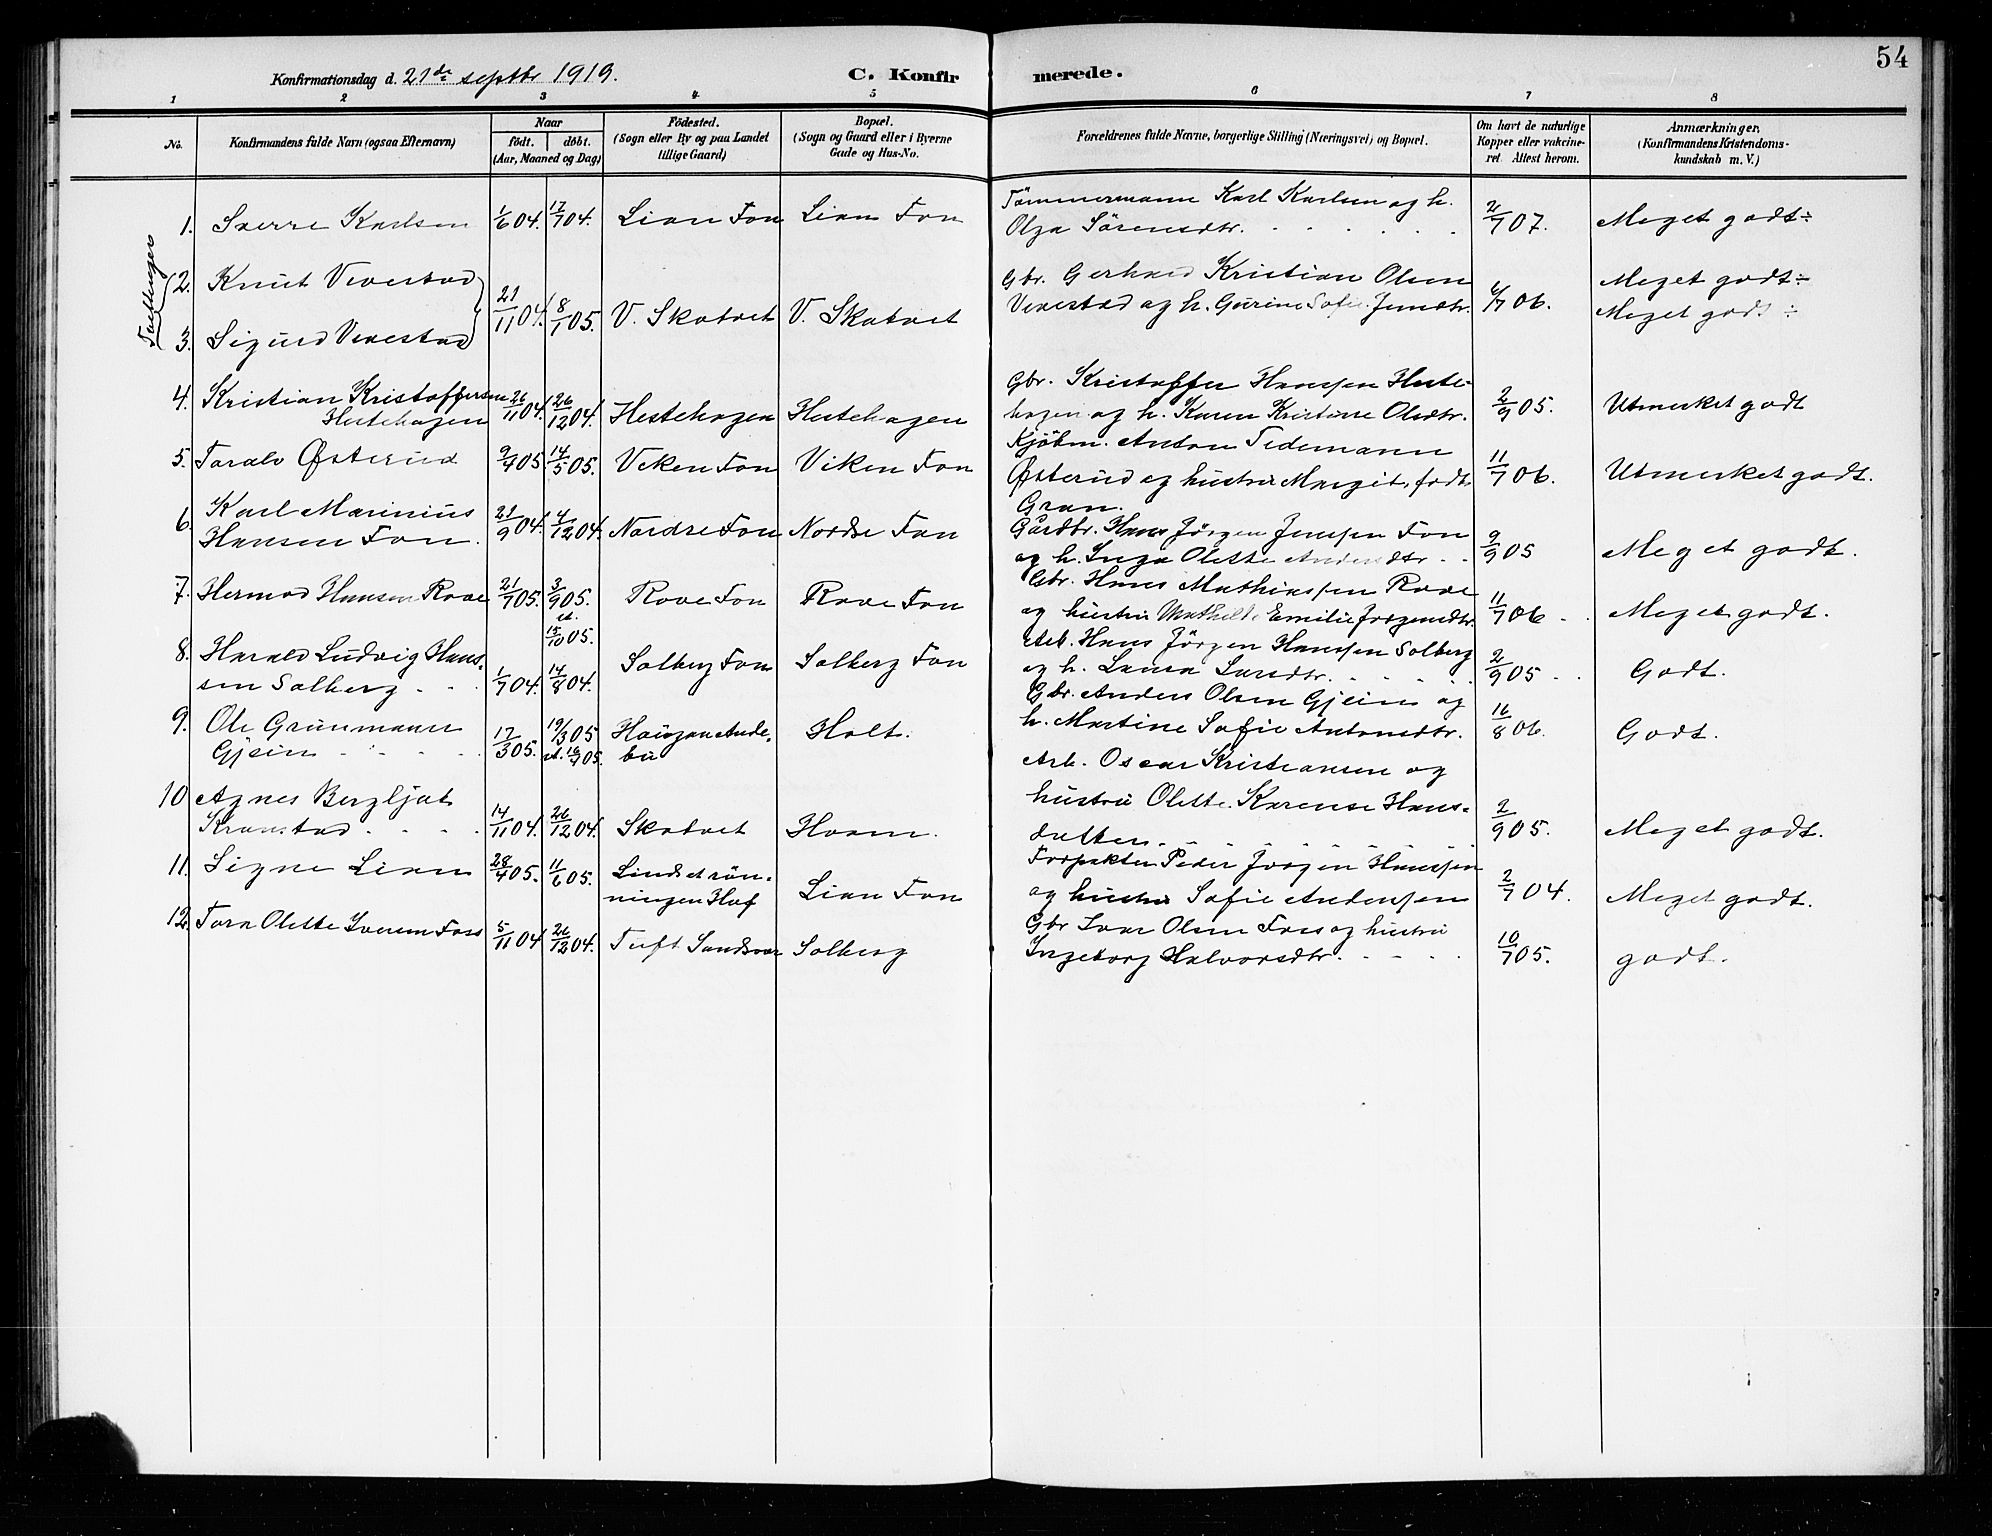 54
Konfirmationsdag d. 21de septbr 1919. C. Konfirmerede.
1 2 3 4 5 6 7 8
No. Konfirmandens fulde Navn (ogsaa Efternavn) Naar født. døbt. (Aar, Maaned og Dag) Fødested. (Sogn eller By og paa Landet tillige Gaard) Bopæl. (Sogn og Gaard eller i Byerne Gade og Hus-No. Forældrenes fulde Navne, borgerlige Stilling (Næringsvei) og Bopæl. Om havt de naturlige Kopper eller vakcineret Attest herom. Anmærkninger. (Konfirmandens Kristendomskundskab m. V.)
1. Sverre Karlsen 1/6 04. 17/7 04. Lian Fon Lian Fon Tömmermann Karl Karlsen og h.
Olga Sörensdtr. 2/7 07. Meget godt÷
Tvillinger
2. Knut Vivestad Gbr. Gerhard Kristian Olsen Meget godt÷
21/11 04. 8/1 05. V. Skatvet V. Skatvet Vivestad og h. Gurine Sofie Jensdtr. 6/7 06. Meget godt ÷
3. Sigurd Vivestad
4. Kristian Kristoffersen Gbr. Kristoffer Hanssen Heste-
Hestehagen 26/11 04. 26/12 04. Hestehagen Hestehagen hagen og h. Karen Kristine Olsdtr. 2/9 05. Utmerket godt
5. Toralv Østerud 9/4 05 14/5 05. Viken Fon Viken Fon Kjöbm. Anton Tidemann
Østerud og hustru Margit, født 11/7 06. Utmerket godt.
Gran.
6. Karl Marinius
Hansen Fon. 21/9 04. 4/12 04. Nordre Fon Nordre Fon Gårdbr. Hans Jörgen Jenssen Fon
og h. Inga Olette Andersdtr. 9/9 05 Meget godt.
7. Hermod Hansen Rove 21/7 05. 3/9 05. Rove Fon Rove Fon Gbr. Hans Mathiassen Rove
st. 15/10 05. og hustru Mathilde Emilie Jörgensdtr. 11/7 06 Meget godt.
8. Harald Ludvig Hans-
sen Solberg 1/7 04. 14/8 04. Solberg Fon Solberg Fon Arb. Hans Jörgen Hanssen Solberg
og h. Laura Larsdtr. 2/9 05 Godt.
9. Ole Grünmann
Gjein 17/3 05. 19/3 05 st. 16/4 05. Haugan Ande-
bu Holt. Gbr. Anders Olsen Gjein og
h. Martine Sofie Antonsdtr. 16/8 06. Godt.
10 Agnes Bergljot
Kronstad 14/11 04. 26/12 04. Skatvet Hvam. Arb. Oscar Kristiansen og
hustru Olette Karense Hans-
datter. 2/9 05. Meget godt.
11. Signe Lian 28/4 05. 11/6 05. Lindsetrön-
ningen Hof Lian Fon Forpakter Peder Jörgen Hanssen
og hustru Sofie Anderssen 2/7 04. Meget godt.
12. Tora Olette Iversen Foss 5/11 04 26/12 04. Tuft Sandsvær Solberg Gbr Ivar Olsen Foss og hustru
Ingeborg Halvorsdtr. 10/7 05. godt.